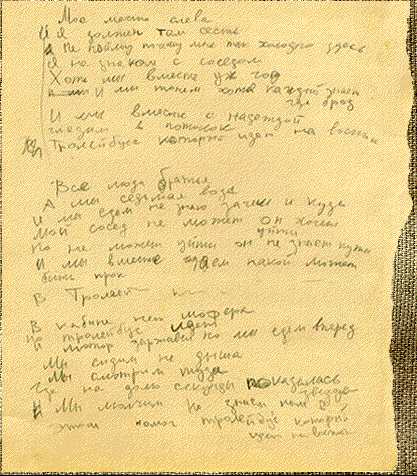 Мое место слева
И Я должен там сесть
Я Не пойму почему мне так холодно здесь
Я не знаком с соседом
Хоть мы вместе уж год
И мы тонем хотя каждый знает
где брод
И мы вместе с надеждой
глядим в потолок
Тролейбуса который идет на восток
Все люди братья
А мы седьмая вода
И мы едем не знаю зачем и куда
Мой сосед не может он хочет
уйти
Но не может уйти он не знает пути
И мы вместе гадаем какой может
быть прок
В Тролей
В кабине нет шофера
Но тролейбус идет
И мотор заржавел но мы едем вперед
Мы сидим не дыша
Мы смотрим туда
Где на долю секунды показалась
звезда
И Мы молчим Но знаем нам в
этом помог тролейбус который
идет на восток